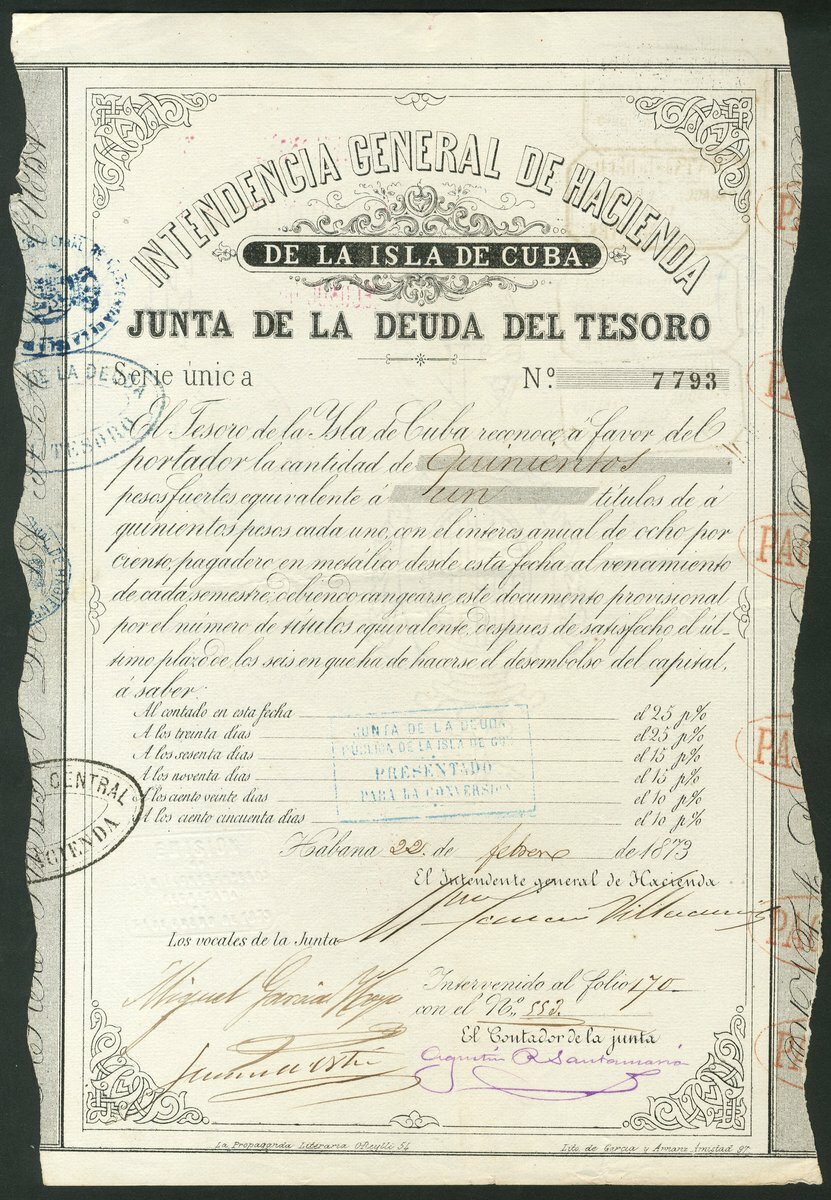 INTENDENCIA GENERAL DE HACIENDA
DE LA ISLA DE CUBA.
JUNTA DE LA DEUDA DEL TESORO
Serie única
Nº 7793
El Tesoro de la Ysla de Cuba reconoce á favor del
portador la cantidad de quinientos
pesos fuertes equivalente á un títulos de á
quinientos pesos cada uno, con el interes anual de ocho por
ciento, pagadero en metálico desde esta fecha al venamiento
de cada semestre, debiendo cangearse este documento provisional
por el número de títulos equivalente, despues de satisfecho el úl-
timo plazo de los seis en que ha de hacerse el desembolso del capital,
á saber:
Al contado en esta fecha el 25 p%
A los treinta dias el 25 p%
A los sesenta dias el 15 p%
A los noventa dias el 15 p%
A los ciento veinte dias el 10 p%
A los ciento cincuenta dias el 10 p%
JUNTA DE LA DEUDA
PUBLICA DE LA ISLA DE CU
PRESENTADO
PARA LA CONVERSION
DE LA DEUDA
TESORO
CENTRAL
Habana 22 de febrero de 1873
El Intendente general de Hacienda
Los vocales de la Junta
Miguel Garcia Hoyo
Intervenido al folio 170
con el Nº 553.
El Contador de la junta
Agustin R Santamaria
La Propaganda Literaria O'Reylli 54
Lito. de Garcia y Amistad 97
PA
PA
PA
PA
PA